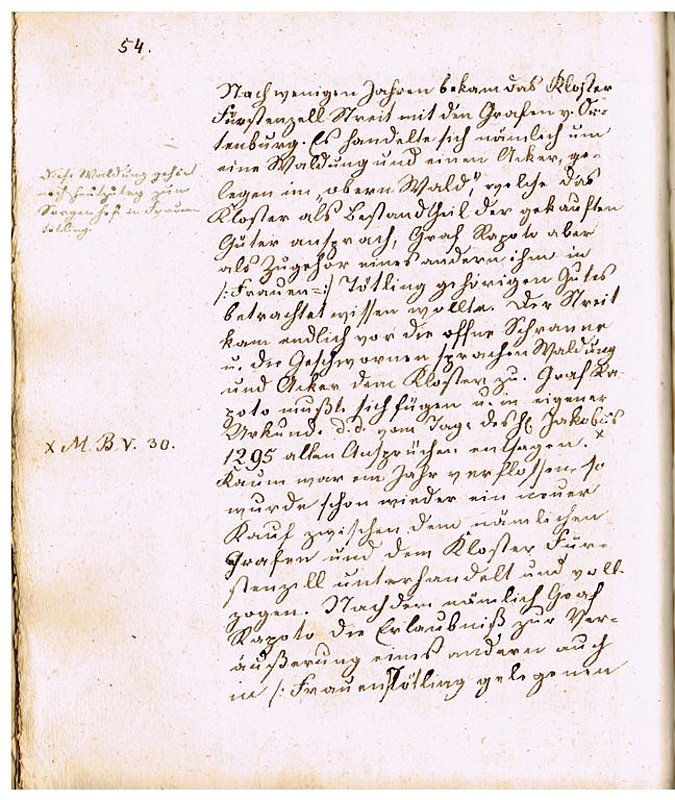 54.
Nach wenigen Jahren bekam das Kloster
Fürstenzell Streit mit den Grafen v. Or-
tenburg. Es handelte sich nämlich um
eine Waldung und einen Acker, ge-
legen im „obern Wald", welche das
Kloster als Bestandtheil der gekauften
Güter ansprach, Graf Rapoto aber
als Zugehör eines andern ihm in
/: Frauen=:/ Tötling gehörigen Gutes
betrachtet wissen wollte. Der Streit
kam endlich vor die offne Schranne
u. die Geschwornen sprachen Waldung
und Acker dem Kloster zu. Graf Ra-
poto mußte sich fügen u. in eigener
Urkund. d.d. vom Tage des hl. Jakobus
1295 allen Ansprüchen entsagen. x
Kaum war ein Jahr verflossen, so
wurde schon wieder ein neuer
Kauf zwischen dem nämlichen
Grafen und dem Kloster Für-
stenzell unterhandelt und voll-
zogen. Nachdem nämlich Graf
Rapoto die Erlaubniß zur Ver-
äußerung eines andern auch
in /: Frauen/Tötling gelegenen
Diese Waldung gehört
noch heutzutag zum
in Frauen
tötling.
x M. B. V. 30.